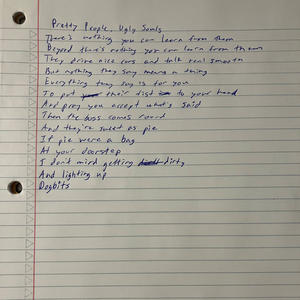 Pretty People, Ugly Souls
There's nothing you can learn from them
Beyond that's nothing you can learn from them
They drive nice cars and talk real smooth
But nothing they say means a thing
Everything they say is for you
To put their to your head
And pray you accept what's said
Then the bass comes round
And they're sweet as pie
If pie were a bag
At your doorstep
I don't mind getting dirty
And lighting up
Dogbits